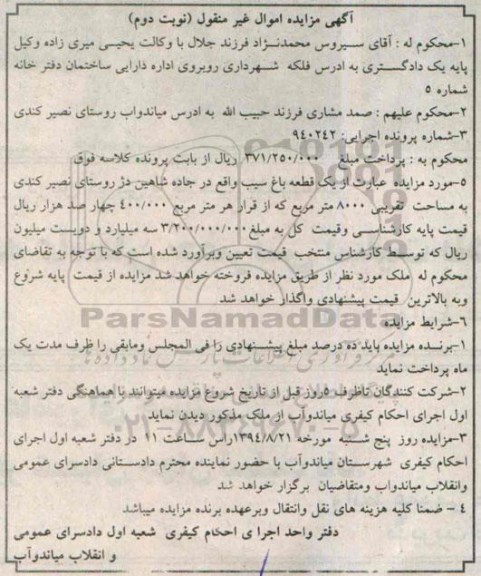 آگهی مزایده اموال غیر منقول (نوبت دوم)
۱-محکوم له : آقای سیروس محمدنژاد فرزند جلال با وکالت یحیی میری زاده وکیل
پایه یک دادگستری به ادرس فلکه شهرداری روبروی اداره دارایی ساختمان دفتر خانه
شماره ۵
۲-محکوم علیهم : صمد مشاری فرزند حبیب الله به ادرس میاندواب روستای نصیر کندی
۳-شماره پرونده اجرایی: ۹۴۰۲۴۲
محکوم به : پرداخت مبلغ ۳۷۱/۲۵۰/۰۰۰ ریال از بابت پرونده کلاسه فوق
۵-مورد مزایده عبارت از یک قطعه باغ سیب واقع در جاده شاهین دژ روستای نصیر کندی
به مساحت تقریبی ۸۰۰۰ متر مربع که از قرار هر متر مربع ۴۰۰/۰۰۰ چهار صد هزار ریال
قیمت پایه کارشناسی وقیمت کل به مبلغ ۳/۲۰۰/۰۰۰/۰۰۰ سه میلیارد و دویست میلیون
ریال که توسط کارشناس منتخب قیمت تعیین وبرآورد شده است که با توجه به تقاضای
محکوم له ملک مورد نظر از طریق مزایده فروخته خواهد شد مزایده از قیمت پایه شروع
وبه بالاترین قیمت پیشنهادی واگذار خواهد شد
۶-شرایط مزایده
ParsNamadData
۱-برنده مزایده باید ده درصد مبلغ پیشنهادی را فی المجلس ومابقی را ظرف مدت یک
ماه پرداخت نماید
۲-شرکت کنندگان تاظرف ۵روز قبل از تاریخ شروع مزایده میتوانند با هماهنگی دفتر شعبه
اول اجرای احکام کیفری میاندوآب از ملک مذکور دیدن نماید
۰۲۱-۸۸۳۴۹۶۷۰-۵
۳-مزایده روز پنج شنبه مورخه ۱۳۹۴/۸/۲۱رأس ساعت ۱۱ در دفتر شعبه اول اجرای
احکام کیفری شهرستان میاندوآب با حضور نماینده محترم دادستانی دادسرای عمومی
وانقلاب میاندواب ومتقاضیان برگزار خواهد شد
۴ - ضمنا کلیه هزینه های نقل وانتقال وبرعهده برنده مزایده میباشد
دفتر واحد اجرا ی احکام کیفری شعبه اول دادسرای عمومی
و انقلاب میاندوآب